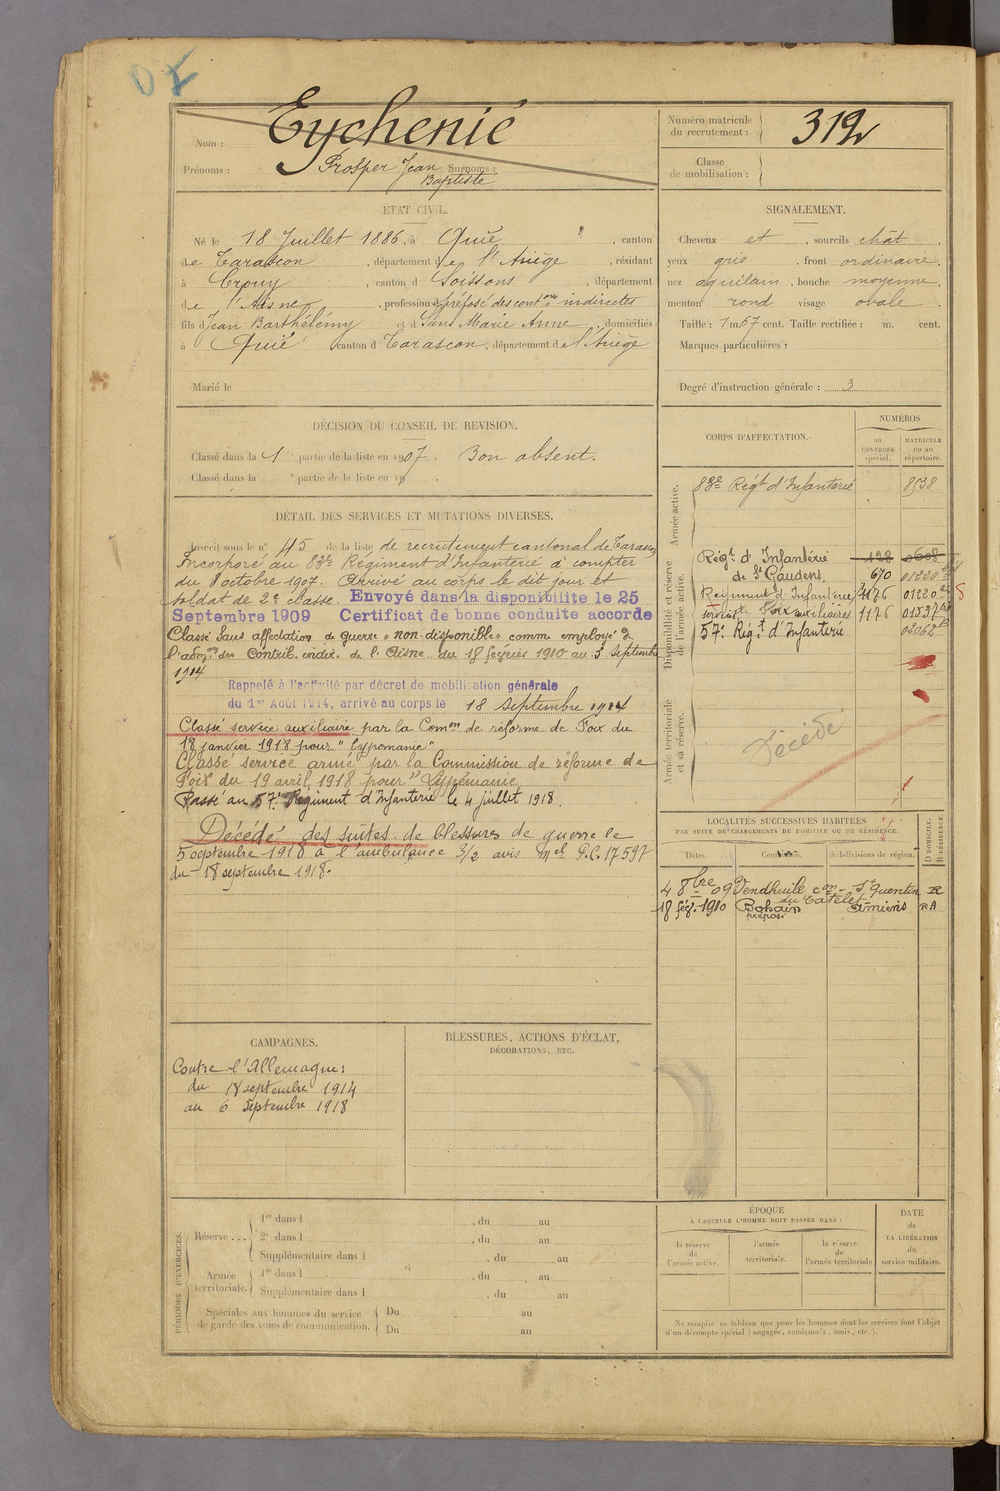 Eychenié
Nom :
Prénoms : Prosper Jean Surnoms :
Baptiste
Numéro matricule
du recrutement : 312
Classe
de mobilisation :
ÉTAT CIVIL.
Né le 18 Juillet 1886, à Quié, canton
de Tarascon, département de l'Ariège, résidant
à Crouy, canton d Soissons, département
de l'Aisne, profession d préposé des cont ons indirectes
fils d Jean Barthélémy et d Sans Marie Anne, domiciliés
à Quié canton d Tarascon, département d e l'Ariège
Marié le
SIGNALEMENT.
Cheveux et, sourcils chât.
yeux gris, front ordinaire.
nez aquilain, bouche moyenne
menton rond visage ovale
Taille : 1 m. 67 cent. Taille rectifiée : m. cent.
Marques particulières :
Degré d'instruction générale : 3
DÉCISION DU CONSEIL DE REVISION.
Classé dans la 1 partie de la liste en 1907. Bon absent.
Classé dans la partie de la liste en 19 .
DÉTAIL DES SERVICES ET MUTATIONS DIVERSES.
Inscrit sous le n° 45 de la liste de recrutement cantonal de Tarascon
Incorporé au 83e Régiment d'Infanterie à compter
du 8 octobre 1907. Arrivé au corps le dit jour et
soldat de 2e classe. Envoyé dans la disponibilité le 25
Septembre 1909 Certificat de bonne conduite accordé
Classé sans affectation de guerre "non disponible" comme employé de
l'adm on des Contrib. indir. de l'Aisne du 18 février 1910 au 3 Septembre
1914
Rappelé à l'activité par décret de mobilisation générale
du 1er Août 1914, arrivé au corps le 18 septembre 1914
Classé service auxiliaire par la Com on de réforme de Foix du
18 janvier 1918 pour "Lypémanie"
Classé service armé par la Commission de réforme de
Foix du 19 avril 1918 pour "Lypémanie
Passé au 57e Régiment d'Infanterie le 4 juillet 1918.
Décédé des suites de blessures de guerre le
5 septembre 1918 à l'ambulance 3/2 avis Mel P.C. 17597
du 18 septembre 1918.
CORPS D'AFFECTATION.
NUMÉROS
AU CONTROLE spécial.
MATRICULE ou au répertoire.
Armée active.
83e Régt d'Infanterie 8538
Disponibilité et réserve
de l'armée active.
Régt d'Infanterie 128
de St Gaudens. 670
Régiment d'Infanterie
auxiliaires 1176
57e Régt d'Infanterie
Armée territoriale
et sa réserve.
Décédé
LOCALITÉS SUCCESSIVES HABITÉES
PAR SUITE DE CHANGEMENTS DE DOMICILE OU DE RÉSIDENCE.
Dates. Communes. Subdivisions de région.
D DOMICILE.
R RÉSIDENCE.
4 8bre 09 Vendhuile con St Quentin R
du Catelet
18 fév. 1910 Bohain Amiens RA
prépos.
CAMPAGNES.
Contre l'Allemagne :
du 18 septembre 1914
au 6 septembre 1918
BLESSURES, ACTIONS D'ÉCLAT,
DÉCORATIONS, ETC.
PÉRIODES D'EXERCICES.
Réserve . . . 1re dans l , du au
2e dans l , du au
Supplémentaire dans l , du au
Armée territoriale. 1re dans l , du au
Supplémentaire dans l , du au
Spéciales aux hommes du service
de garde des voies de communication. Du au
Du au
ÉPOQUE
À LAQUELLE L'HOMME DOIT PASSER DANS :
la réserve de l'armée active.
l'armée territoriale.
la réserve de l'armée territoriale
DATE
de
LA LIBÉRATION
du
service militaire.
Ne remplir ce tableau que pour les hommes dont les services font l'objet
d'un décompte spécial (engagés, condamnés, omis, etc.).